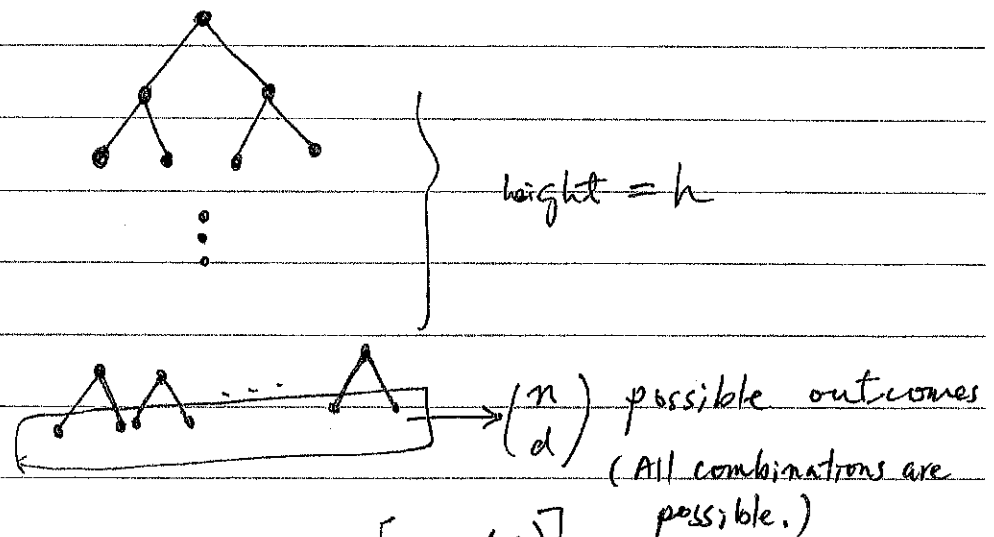 height = h
(n d) possible outcomes
(All combinations are
possible.)